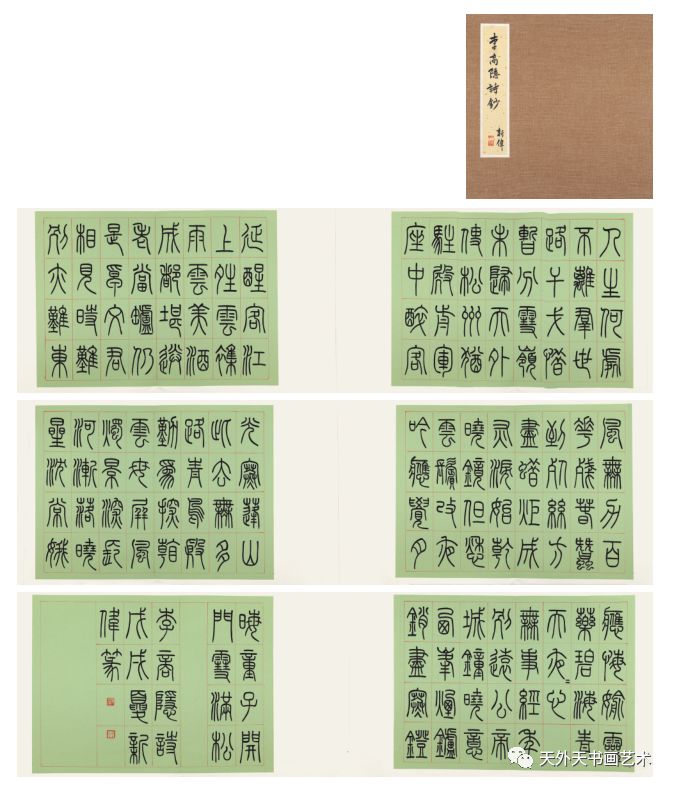 李商隱詩鈔
新偉
人生何處
不離群世
路干戈惜
暫分雪嶺
未歸天外
使松州猶
駐殿前軍
座中醉客
延醒客江
上晴雲雜
雨雲美酒
成都堪送
老當壚仍
是卓文君
相見時難
別亦難東
風無力百
花殘春蠶
到死絲方
盡蠟炬成
灰淚始乾
曉鏡但愁
雲鬢改夜
吟應覺月
光寒蓬山
此去無多
路青鳥殷
勤為探看
雲母屏風
燭影深長
河漸落曉
星沉常娥
應悔偷靈
藥碧海青
天夜=心
無事經年
別遠公帝
城鐘曉意
西峯煙鑪
銷盡寒鐙
晦童子開
門雪滿松
李商隱詩
戊戌夏新
偉篆
天外天书画艺术